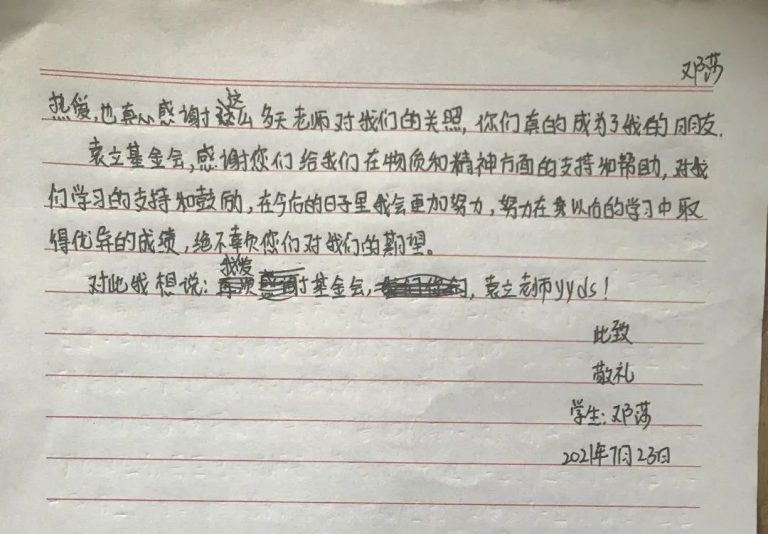 邓莎
热爱,也真心感谢这么多天老师对我们的关照,你们真的成为了我的朋友.
袁立基金会,感谢您们给我们在物质和精神方面的支持和帮助,对我
们学习的支持和鼓励,在今后的日子里我会更加努力,努力在以后的学习中取
得优异的成绩,绝不辜负您们对我们的期望。
对此我想说:我爱基金会,袁立老师yyds!
此致
敬礼
学生:邓莎
2021年7月23日